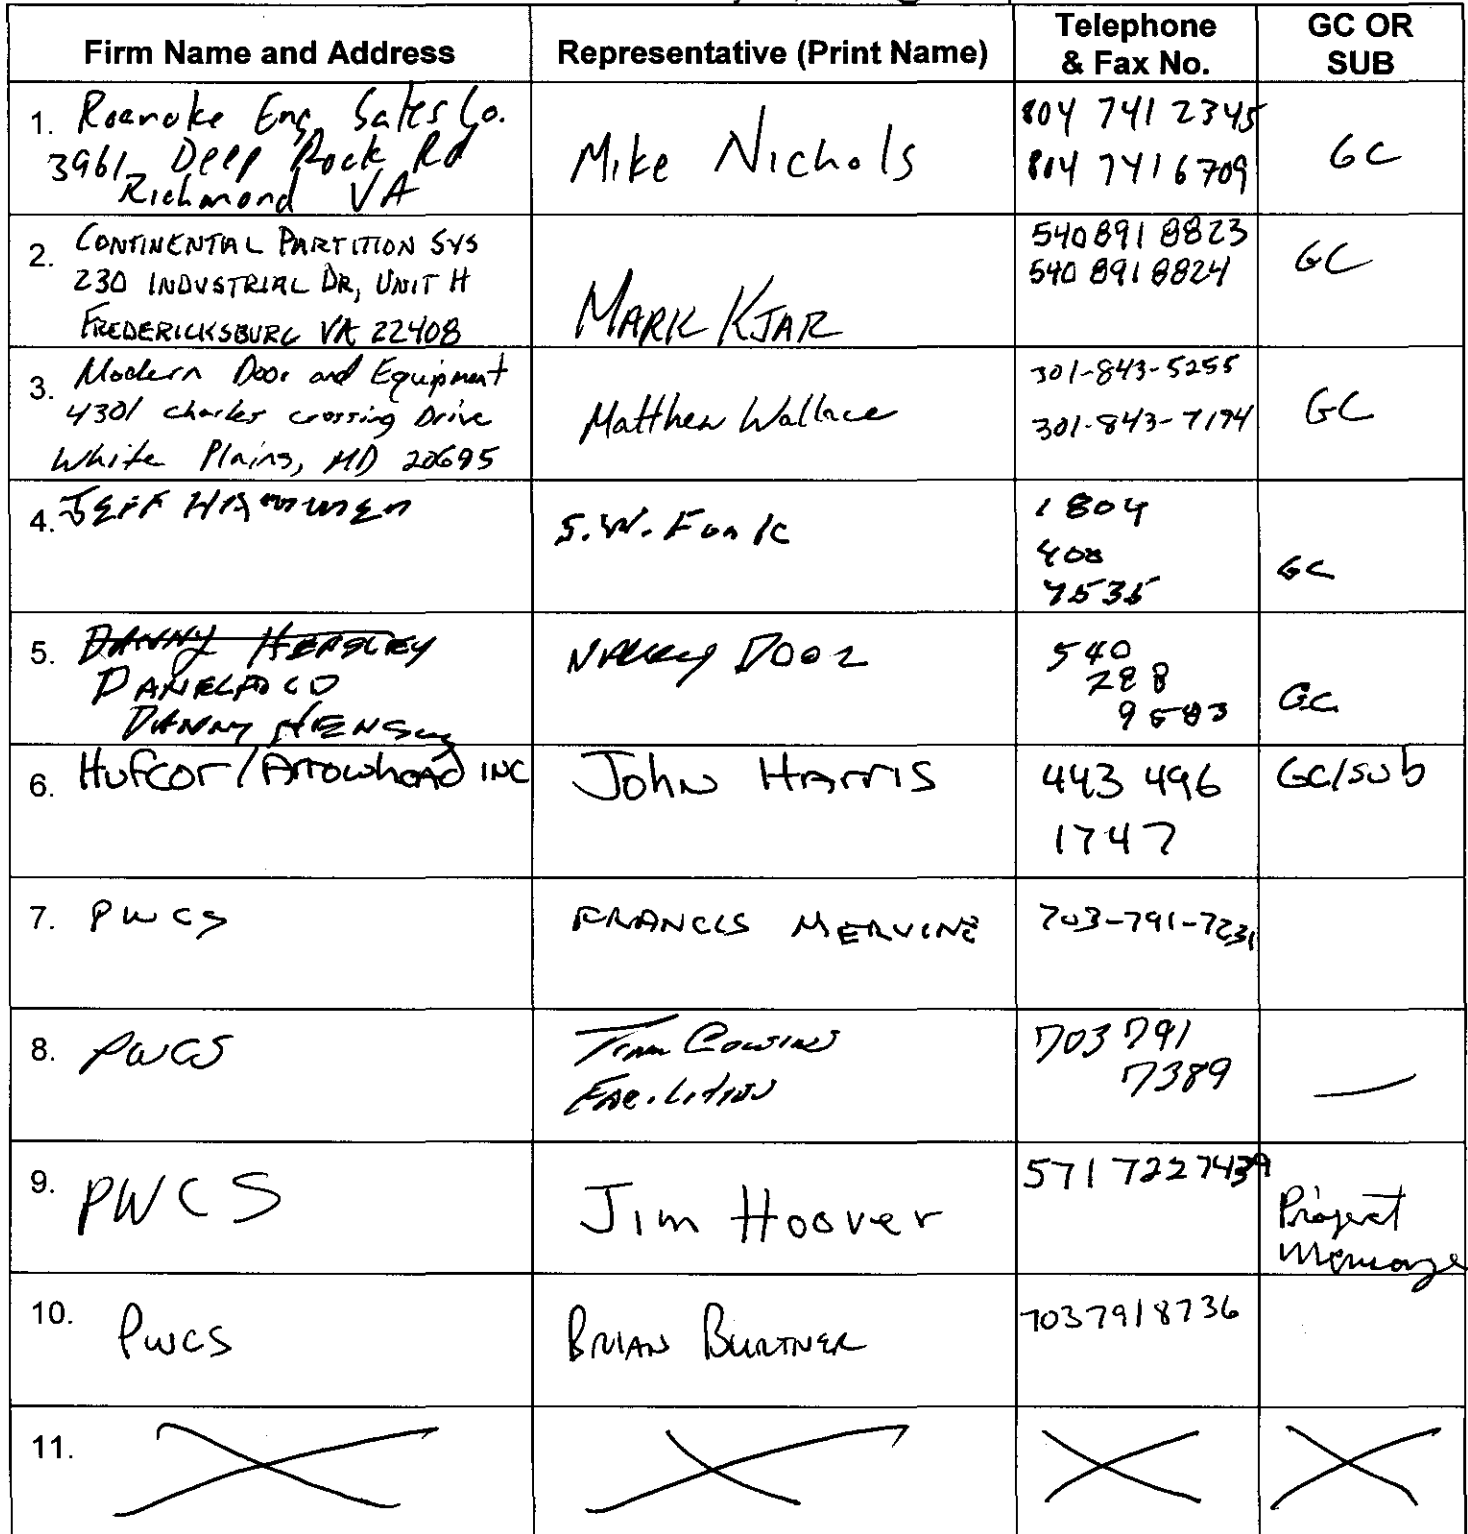 Firm Name and Address
Representative (Print Name)
Telephone & Fax No.
GC OR SUB
1. Roanoke Eng. Sales Co.
3961 Deep Rock Rd
Richmond VA
Mike Nichols
804 741 2345
804 741 6709
GC
2. CONTINENTAL PARTITION SYS
230 INDUSTRIAL DR, UNIT H
FREDERICKSBURG VA 22408
MARK KJAR
540 891 8823
540 891 8824
GC
3. Modern Door and Equipment
4301 Charles crossing Drive
White Plains, MD 20695
Matthew Wallace
301-843-5255
301-843-7194
GC
4. JEFF
S.W. Funk
1 804
400
7535
GC
5. DANNY
DANNY HENSLEY
VALLEY DOOR
540
288
9583
GC
6. Hufcor / Arrowhead INC
John Harris
443 496
1747
GC/sub
7. PWCS
FRANCIS MERVINE
703-791-7231
8. PWCS
Tim Cousins
Facilities
703 791
7389
9. PWCS
Jim Hoover
571 722 7439
Project
Manager
10. PWCS
BRIAN BURTNER
703 791 8736
11.